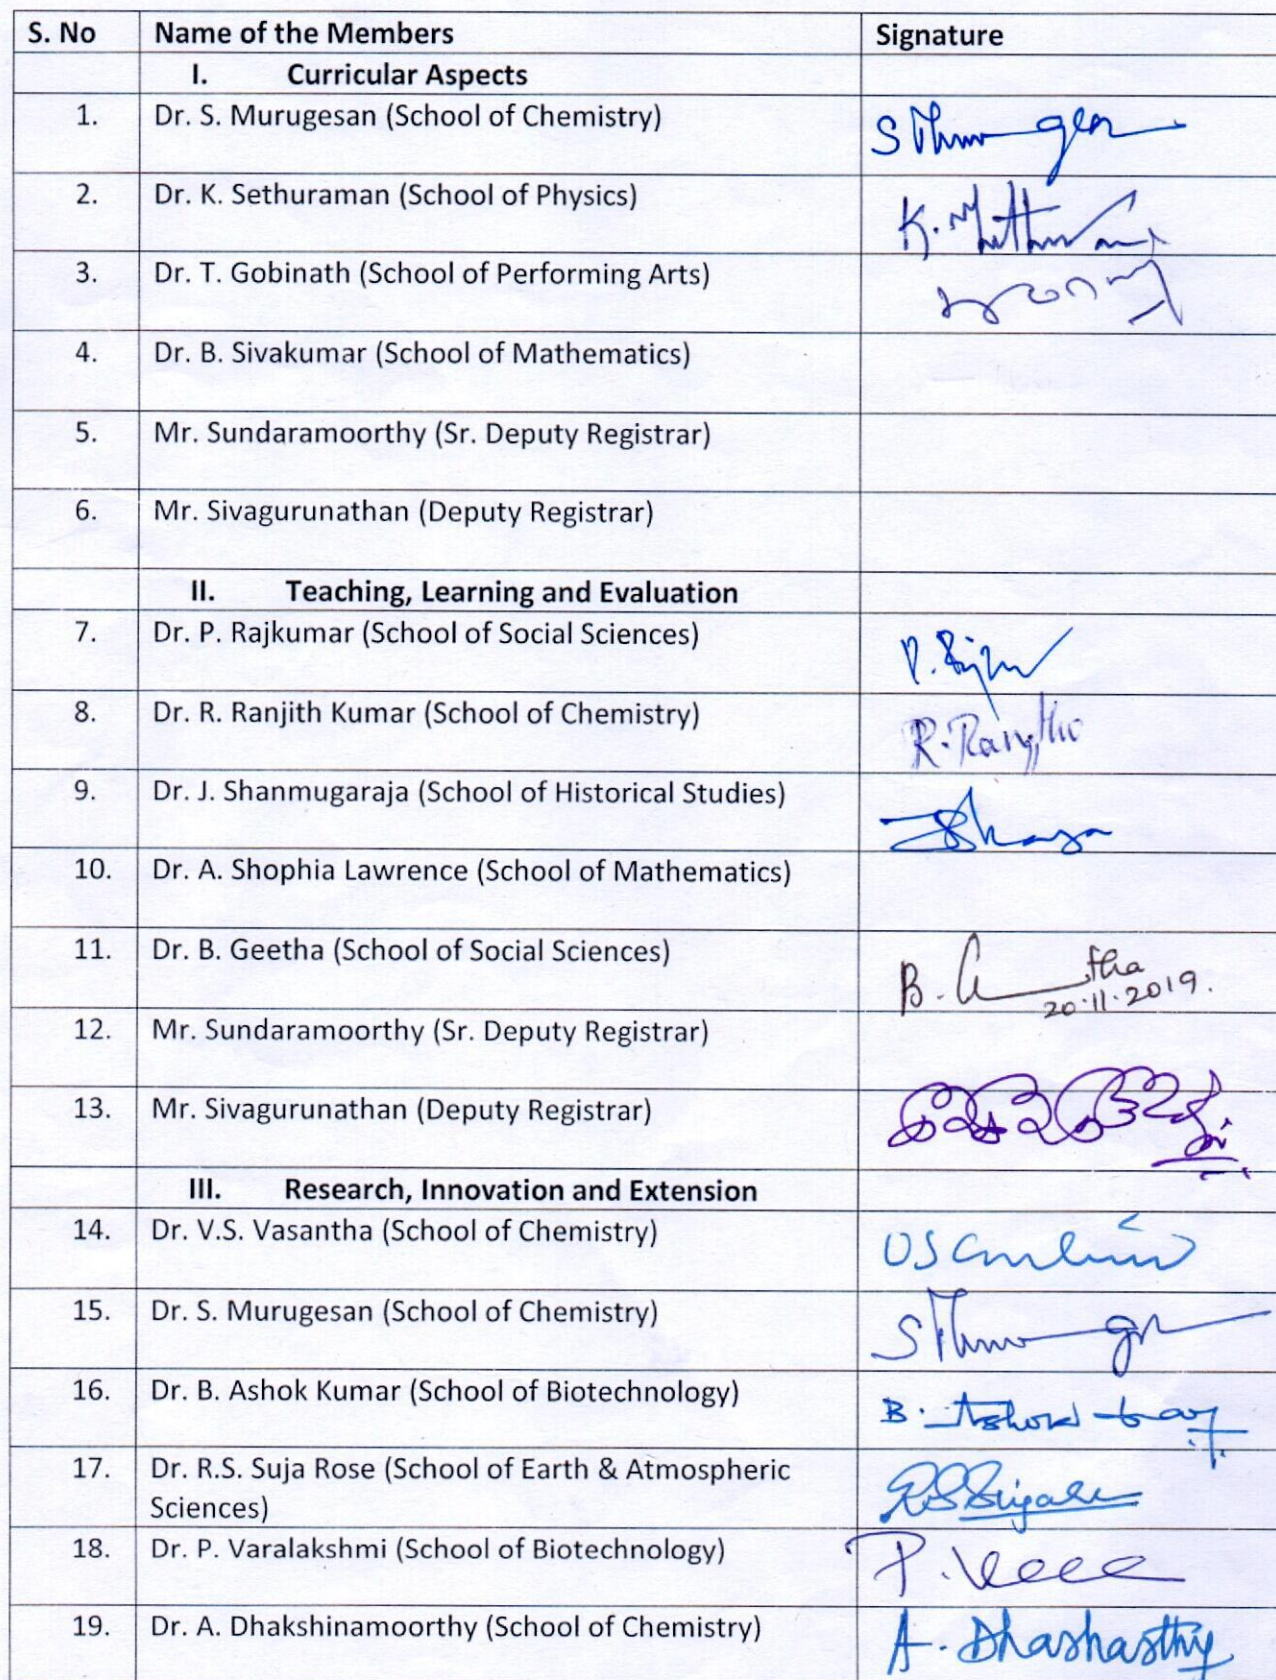 S. No Name of the Members Signature
I. Curricular Aspects
1. Dr. S. Murugesan (School of Chemistry)
2. Dr. K. Sethuraman (School of Physics)
3. Dr. T. Gobinath (School of Performing Arts)
4. Dr. B. Sivakumar (School of Mathematics)
5. Mr. Sundaramoorthy (Sr. Deputy Registrar)
6. Mr. Sivagurunathan (Deputy Registrar)
II. Teaching, Learning and Evaluation
7. Dr. P. Rajkumar (School of Social Sciences)
8. Dr. R. Ranjith Kumar (School of Chemistry)
9. Dr. J. Shanmugaraja (School of Historical Studies)
10. Dr. A. Shophia Lawrence (School of Mathematics)
11. Dr. B. Geetha (School of Social Sciences) B.
20.11.2019.
12. Mr. Sundaramoorthy (Sr. Deputy Registrar)
13. Mr. Sivagurunathan (Deputy Registrar)
III. Research, Innovation and Extension
14. Dr. V.S. Vasantha (School of Chemistry)
15. Dr. S. Murugesan (School of Chemistry)
16. Dr. B. Ashok Kumar (School of Biotechnology) B. Ashok
17. Dr. R.S. Suja Rose (School of Earth & Atmospheric
Sciences)
18. Dr. P. Varalakshmi (School of Biotechnology) P.
19. Dr. A. Dhakshinamoorthy (School of Chemistry) A.